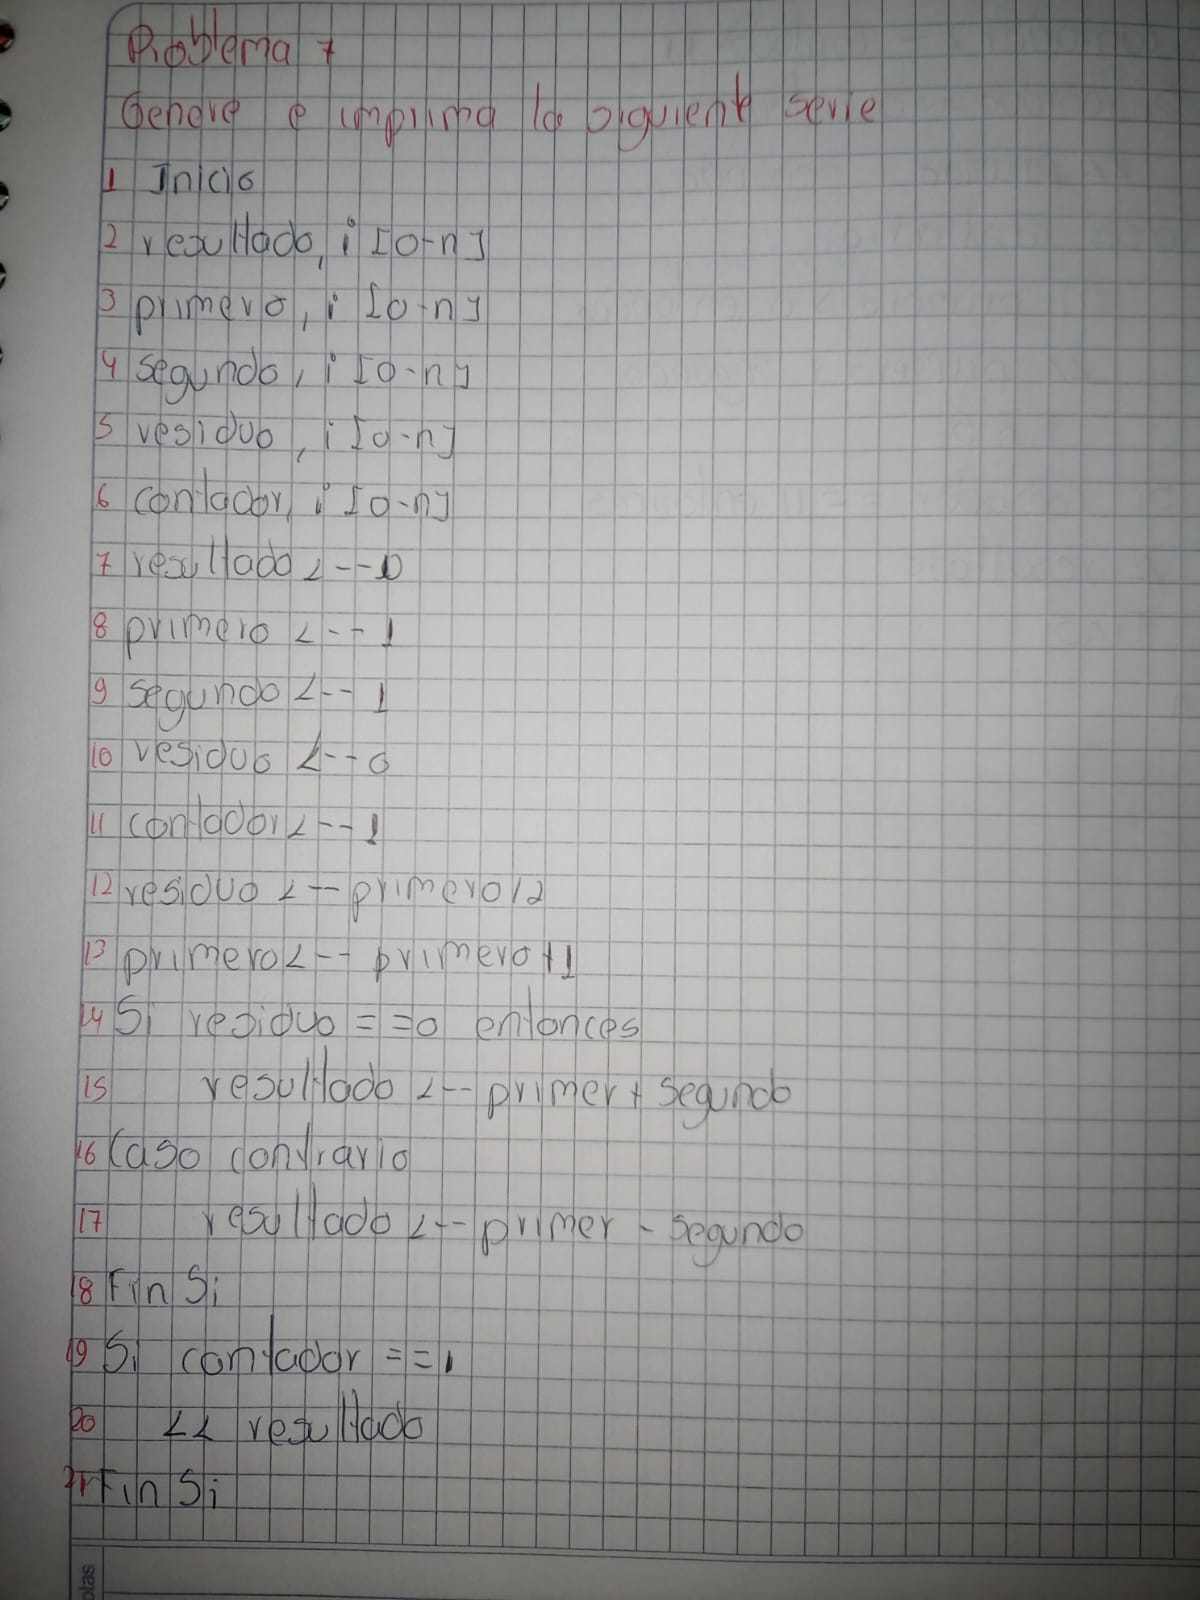 Problema 7
Genere e imprima la siguiente serie
1 Inicio
2 resultado, i [0-n]
3 primero, i [0-n]
4 segundo, i [0-n]
5 residuo, i [0-n]
6 contador, i [0-n]
7 resultado <--0
8 primero <-- 1
9 segundo <-- 1
10 residuo <--0
11 contador <-- 1
12 residuo <-- primero/2
13 primero <-- primero+1
14 Si residuo ==0 entonces
15 resultado <-- primer + segundo
16 Caso contrario
17 resultado <-- primer - segundo
18 Fin Si
19 Si contador ==1
20 << resultado
21 Fin Si